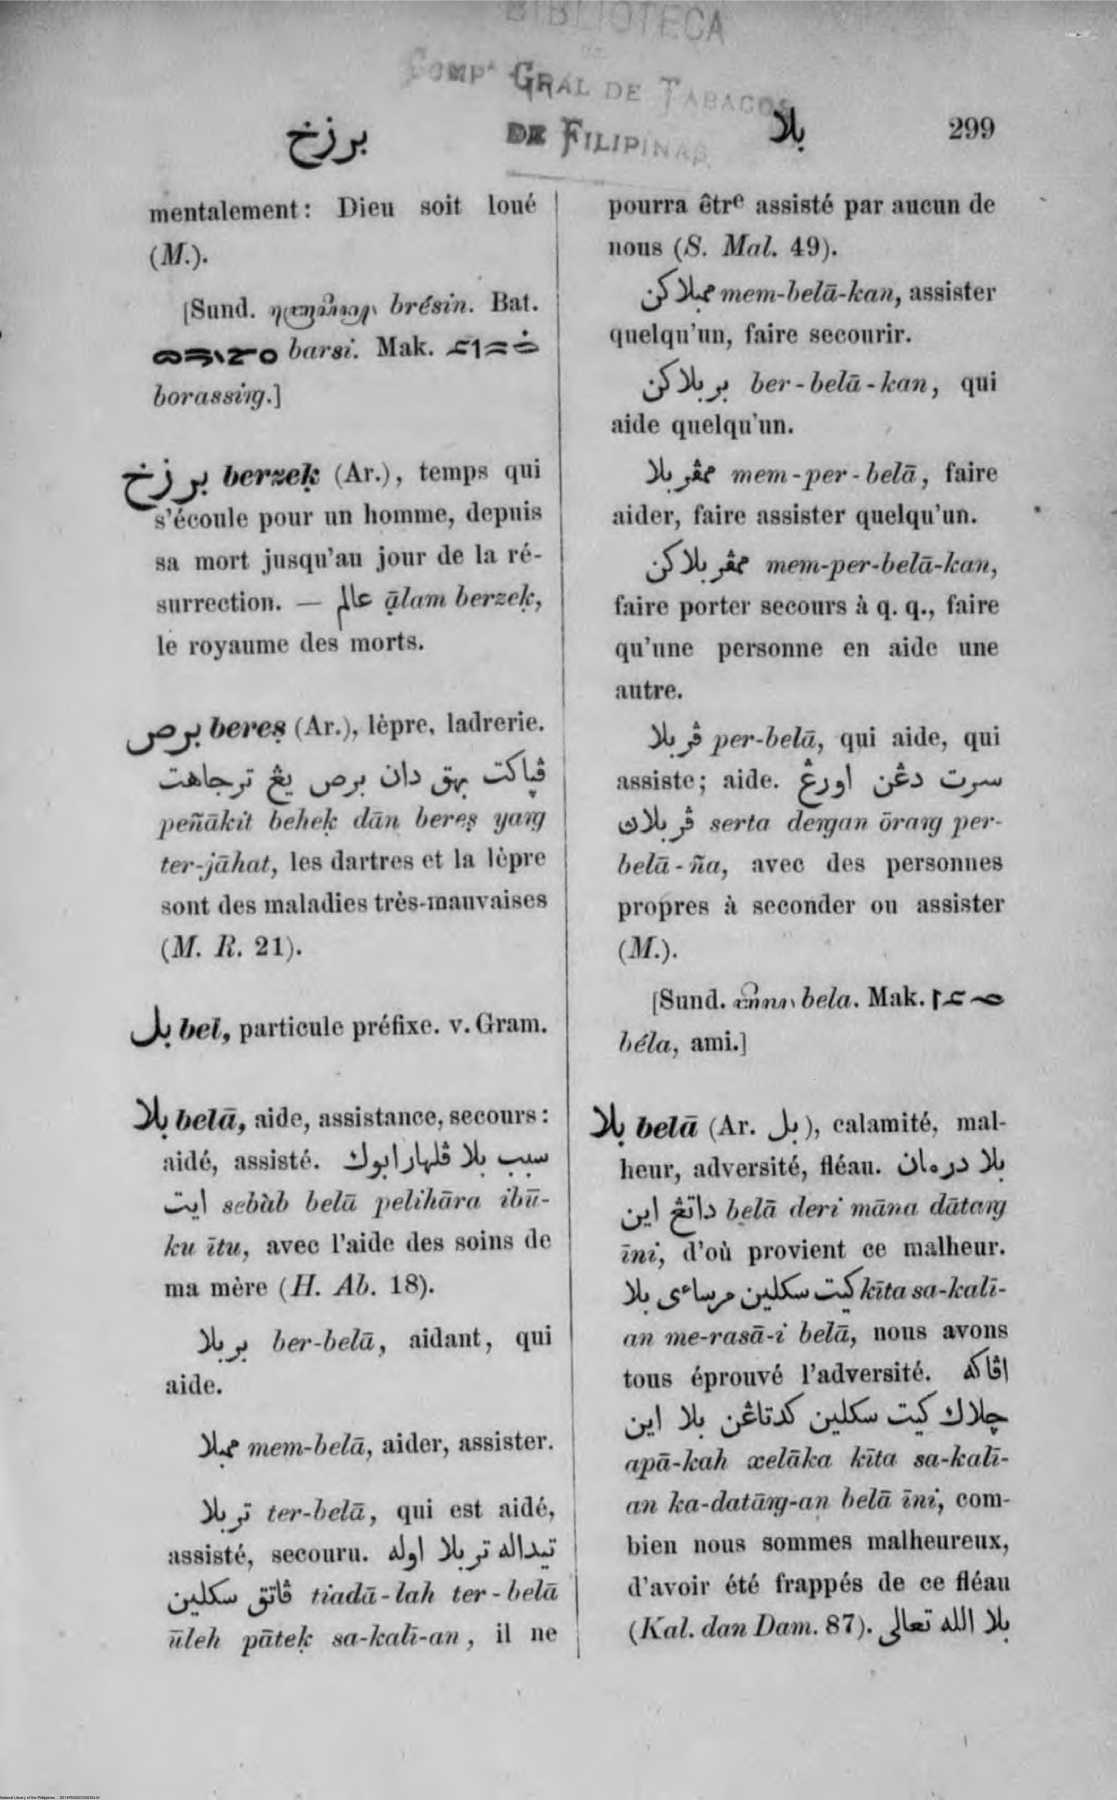 BIBLIOTECA
DE
COMPª GRAL DE TABACOS
DE FILIPINAS
برزخ
بلا
299
mentalement: Dieu soit loué
(M.).
[Sund. brésin. Bat.
barsi. Mak.
borassiŋ.]
برزخ berzeḳ (Ar.), temps qui
s'écoule pour un homme, depuis
sa mort jusqu'au jour de la ré-
surrection. — عالم ạ̄lam berzeḳ,
le royaume des morts.
برص bereṣ (Ar.), lèpre, ladrerie.
ڤپاكت بهق دان برص يڠ ترجاهت
peñākit beheḳ dān bereṣ yaŋ
ter-jāhat, les dartres et la lèpre
sont des maladies très-mauvaises
(M. R. 21).
بل bel, particule préfixe. v. Gram.
بلا belā, aide, assistance, secours:
aidé, assisté. سبب بلا ڤلهارابوك
ايت sebàb belā pelihāra ibū-
ku ītu, avec l'aide des soins de
ma mère (H. Ab. 18).
بربلا ber-belā, aidant, qui
aide.
ممبلا mem-belā, aider, assister.
تربلا ter-belā, qui est aidé,
assisté, secouru. تيداله تربلا اوله
ڤاتق سكلين tiadā-lah ter-belā
ūleh pātek sa-kalī-an, il ne
pourra être assisté par aucun de
nous (S. Mal. 49).
ممبلاكن mem-belā-kan, assister
quelqu'un, faire secourir.
بربلاكن ber-belā-kan, qui
aide quelqu'un.
ممڤربلا mem-per-belā, faire
aider, faire assister quelqu'un.
ممڤربلاكن mem-per-belā-kan,
faire porter secours à q. q., faire
qu'une personne en aide une
autre.
ڤربلا per-belā, qui aide, qui
assiste; aide. سرت دڠن اورڠ
ڤربلاٽ serta deŋan ōraŋ per-
belā-ña, avec des personnes
propres à seconder ou assister
(M.).
[Sund. bela. Mak.
béla, ami.]
بلا belā (Ar. بل), calamité, mal-
heur, adversité, fléau. بلا درمان
داتڠ اين belā deri māna dātaŋ
īni, d'où provient ce malheur.
كيت سكلين مرساءى بلا kīta sa-kalī-
an me-rasā-i belā, nous avons
tous éprouvé l'adversité. اڤاكه
چلاك كيت سكلين كدتاڠن بلا اين
apā-kah xelāka kīta sa-kalī-
an ka-datāŋ-an belā īni, com-
bien nous sommes malheureux,
d'avoir été frappés de ce fléau
(Kal. dan Dam. 87). بلا الله تعالى